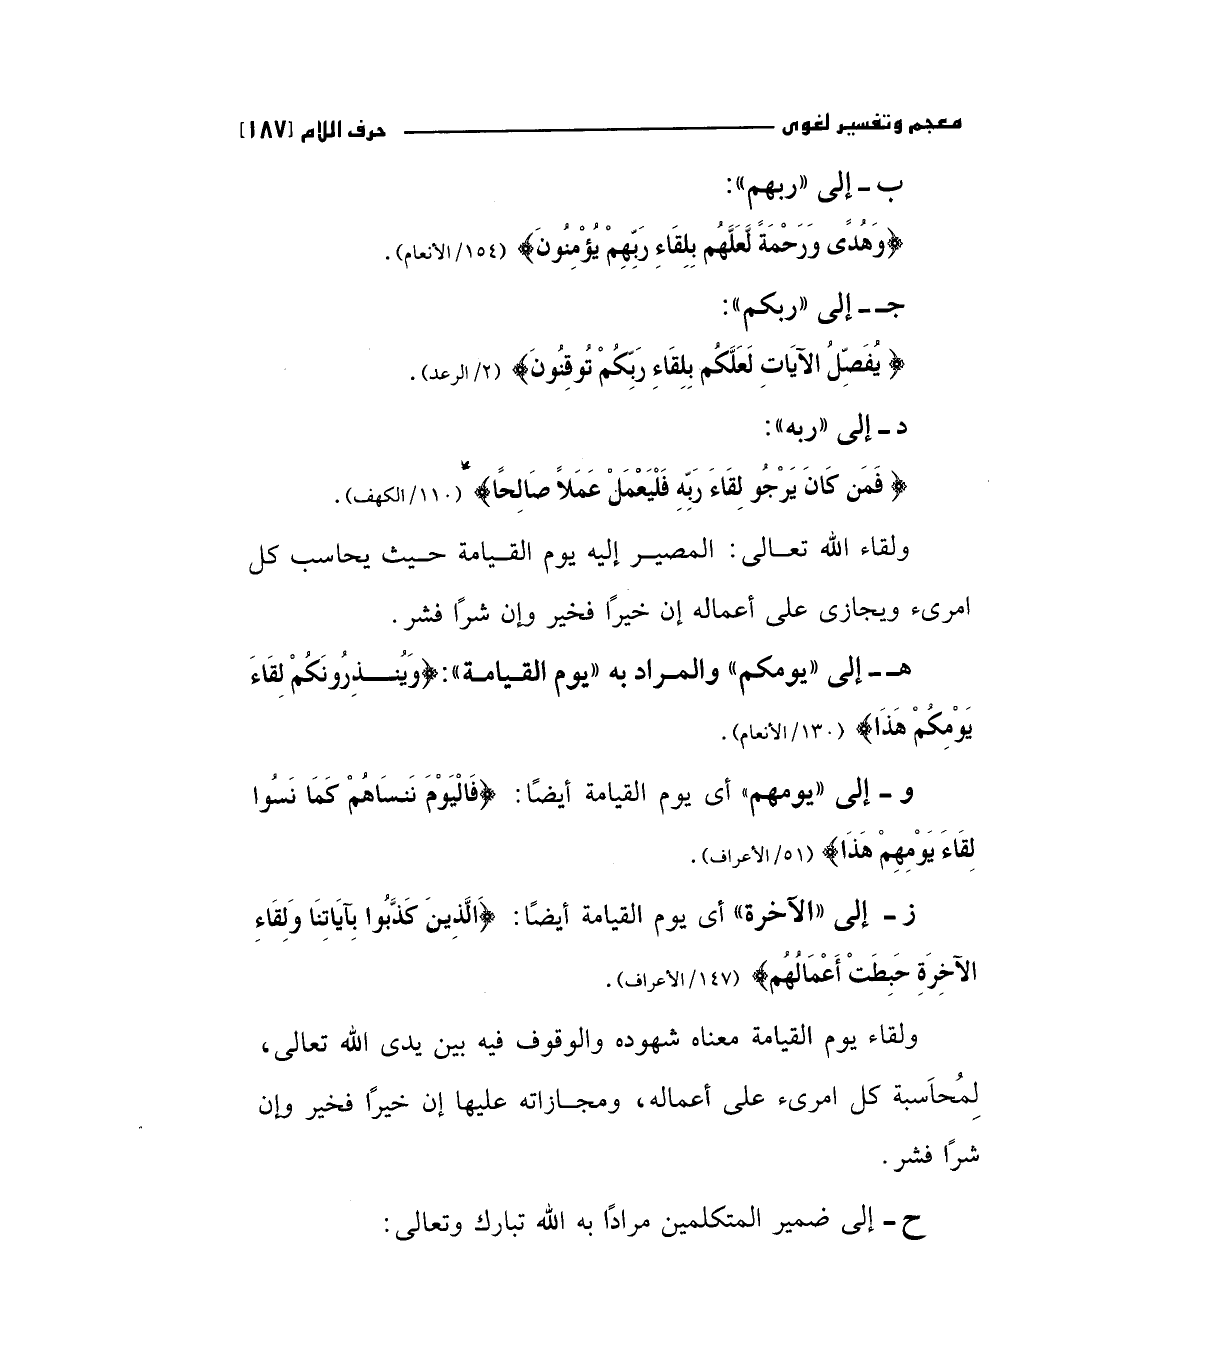 معجم وتفسير لغوى ــــــــــ حرف اللام [١٨٧]
ب ـ إلى «ربهم»:
﴿وَهُدًى وَرَحْمَةً لَّعَلَّهُم بِلِقَاءِ رَبِّهِمْ يُؤْمِنُونَ﴾ (١٥٤/الأنعام).
جـ ـ إلى «ربكم»:
﴿يُفَصِّلُ الآيَاتِ لَعَلَّكُم بِلِقَاءِ رَبِّكُمْ تُوقِنُونَ﴾ (٢/الرعد).
د ـ إلى «ربه»:
﴿فَمَن كَانَ يَرْجُو لِقَاءَ رَبِّهِ فَلْيَعْمَلْ عَمَلاً صَالِحًا﴾ (١١٠/الكهف).
ولقاء الله تعالى: المصير إليه يوم القيامة حيث يحاسب كل
امرىء ويجازى على أعماله إن خيرًا فخير وإن شرًا فشر.
هـ ـ إلى «يومكم» والمراد به «يوم القيامة»: ﴿وَيُنذِرُونَكُمْ لِقَاءَ
يَوْمِكُمْ هَذَا﴾ (١٣٠/الأنعام).
و ـ إلى «يومهم» أى يوم القيامة أيضًا: ﴿فَالْيَوْمَ نَنسَاهُمْ كَمَا نَسُوا
لِقَاءَ يَوْمِهِمْ هَذَا﴾ (٥١/الأعراف).
ز ـ إلى «الآخرة» أى يوم القيامة أيضًا: ﴿اَلَّذِينَ كَذَّبُوا بِآيَاتِنَا وَلِقَاءِ
الآخِرَةِ حَبِطَتْ أَعْمَالُهُم﴾ (١٤٧/الأعراف).
ولقاء يوم القيامة معناه شهوده والوقوف فيه بين يدى الله تعالى،
لِمُحاَسبة كل امرىء على أعماله، ومجازاته عليها إن خيرًا فخير وإن
شرًا فشر.
ح ـ إلى ضمير المتكلمين مرادًا به الله تبارك وتعالى: